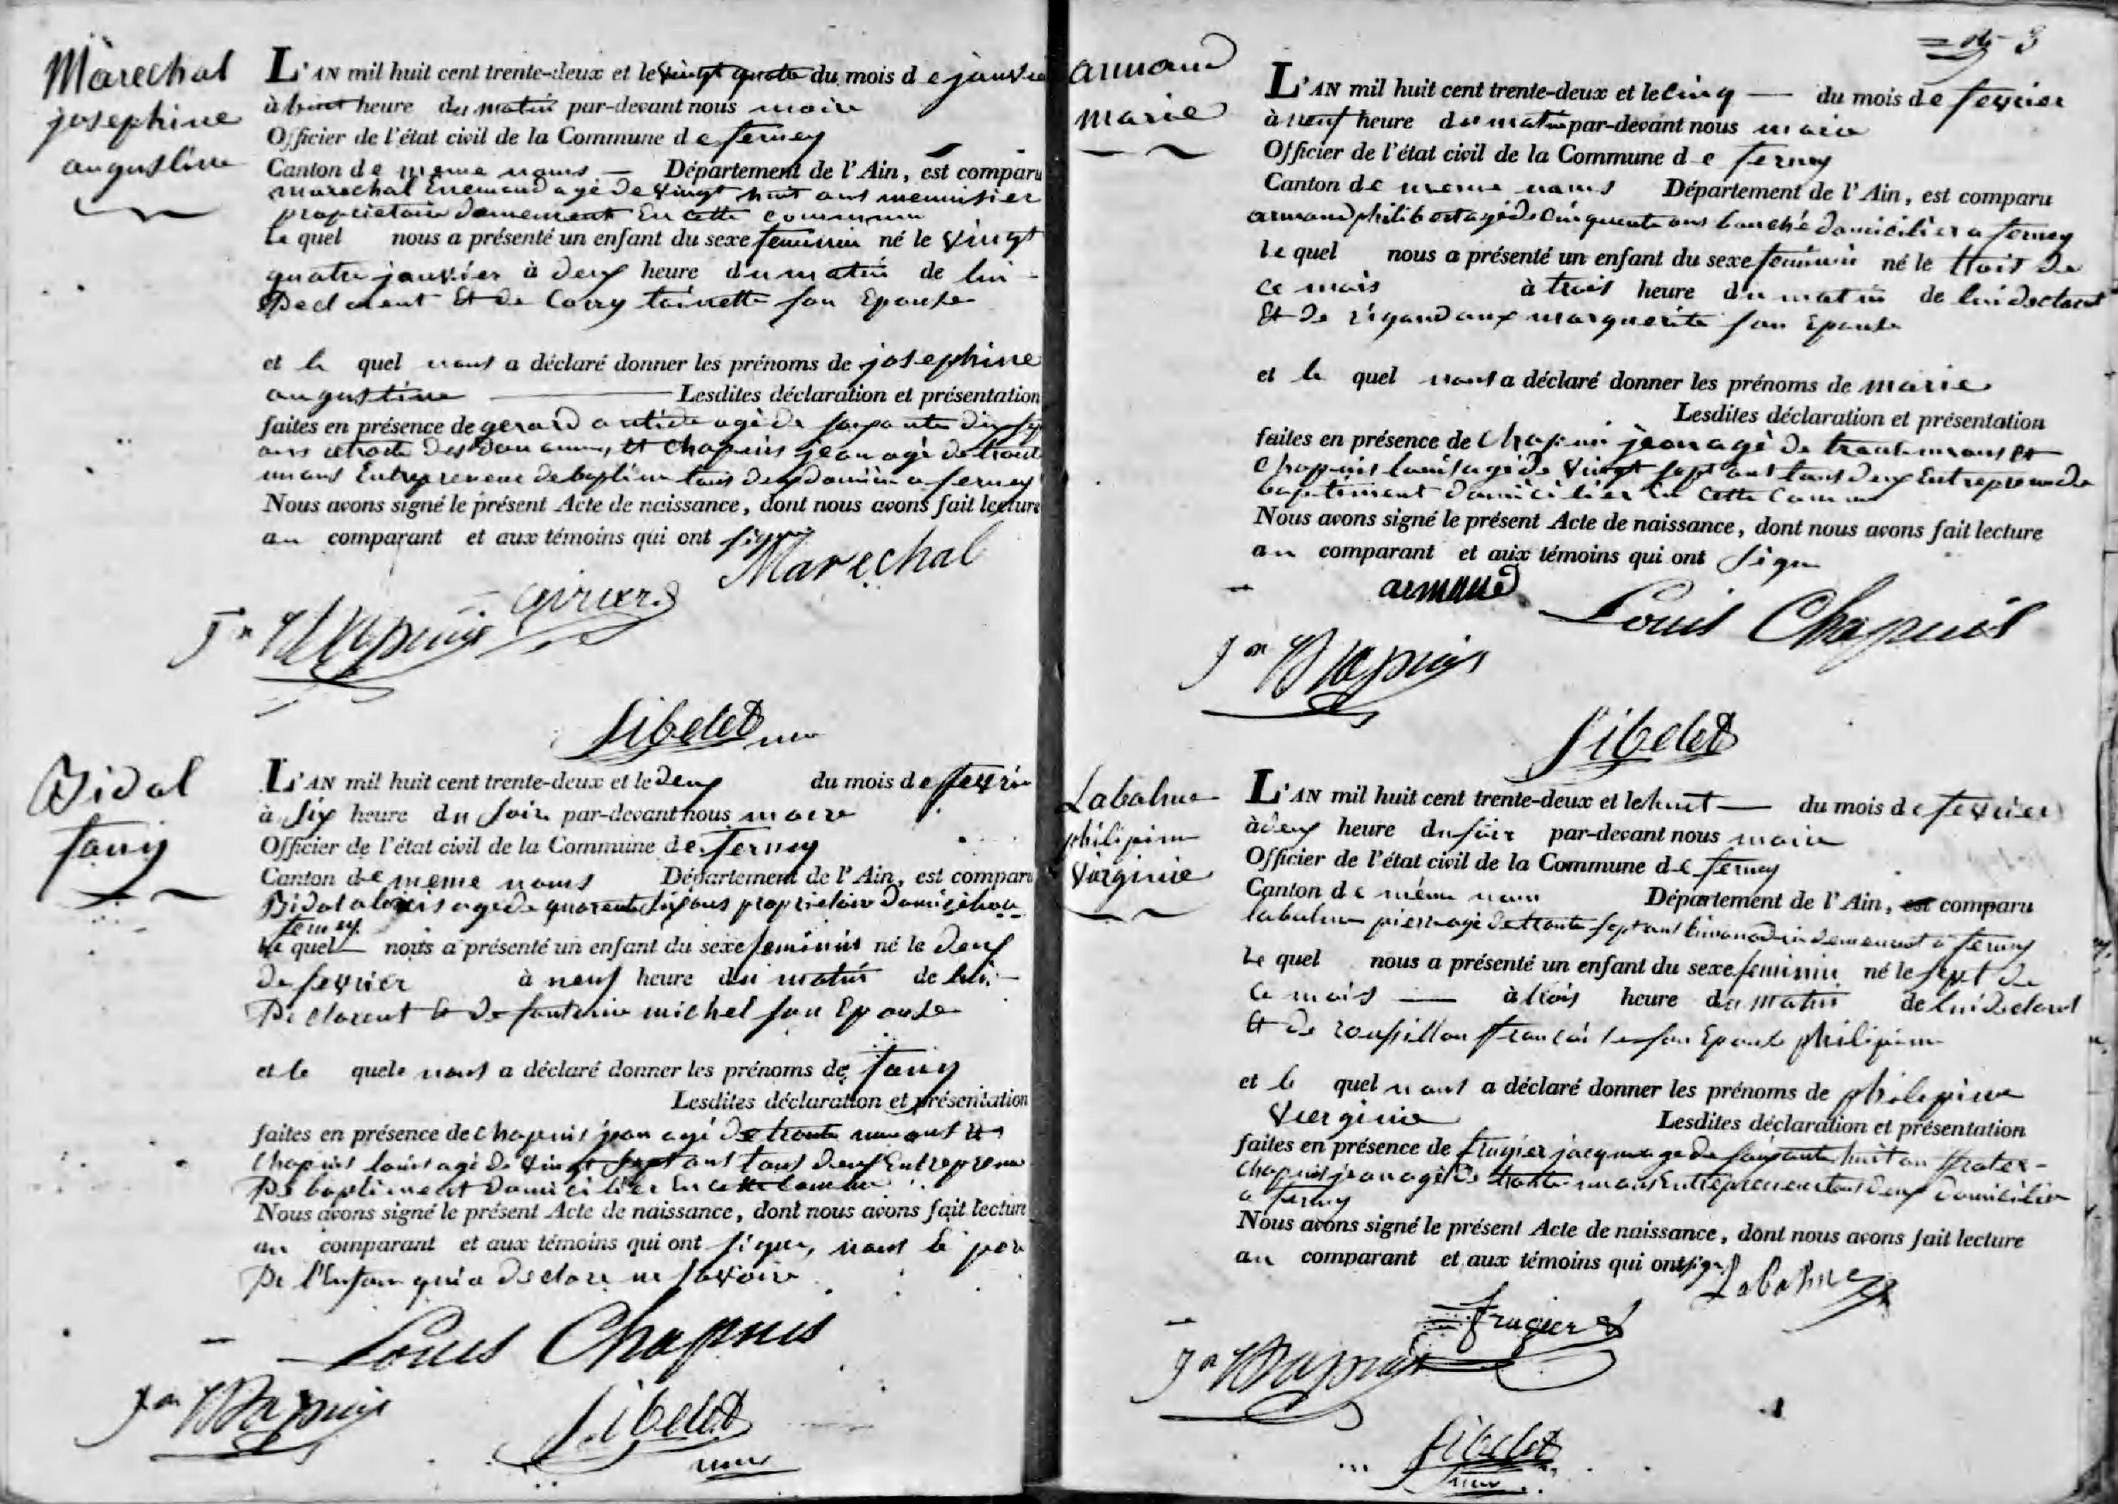 Marechal
josephine
augustine
L'AN mil huit cent trente-deux et le vingt quatre du mois de janvier
à huit heure du matin par-devant nous maire
Officier de l'état civil de la Commune de ferney
Canton de meme noms Département de l'Ain, est comparu
marechal Enemond agé de vingt huit ans menuisier
propriétaire demeurant En cette commune
le quel nous a présenté un enfant du sexe feminin né le vingt
quatre janvier à deux heure du matin de lui
Declarent Et de Corry son Epouse
et le quel nous a déclaré donner les prénoms de josephine
augustine Lesdites déclaration et présentation
faites en présence de gerard agé de soixante dix
ans retraité des douannes, Et Chapuis jean agé de trente
un ans Entrepreneur de tous deux a ferney
Nous avons signé le présent Acte de naissance, dont nous avons fait lecture
au comparant et aux témoins qui ont signé
Marechal
jn Chapuis
Sibelet
Bidal
fany
L'AN mil huit cent trente-deux et le deux du mois de fevrier
à six heure du soir par-devant nous maire
Officier de l'état civil de la Commune de ferney
Canton de meme noms Département de l'Ain, est comparu
Bidal agé de quarente six ans propriétaire
ferney
le quel nous a présenté un enfant du sexe feminin né le deux
de fevrier à neuf heure du matin de lui
Declarent Et de fontaine michel son Epouse
et le quele nous a déclaré donner les prénoms de fany
Lesdites déclaration et présentation
faites en présence de chapuis jean agé de trente un ans Et
Chapuis louis agé de vingt sept ans tous deux Entrepreneur
De baptiment Domicilier En cette commune
Nous avons signé le présent Acte de naissance, dont nous avons fait lecture
au comparant et aux témoins qui ont signer, nous le per
De l'Enfan qui a declare ne savoire
Louis Chapuis
jn Chapuis
Sibelet
armand
marie
3
L'AN mil huit cent trente-deux et le cinq du mois de fevrier
à neuf heure du matin par-devant nous maire
Officier de l'état civil de la Commune de ferney
Canton de meme noms Département de l'Ain, est comparu
armand philibert agé de cinquente ans bouché domicilier a ferney
le quel nous a présenté un enfant du sexe féminin né le trois de
ce mois à trois heure du matin de lui declarent
Et de rigaudaux marguerite son Epouse
et le quel nous a déclaré donner les prénoms de marie
Lesdites déclaration et présentation
faites en présence de Chapuis jean agé de trente un ans Et
Chapuis louis agé de vingt sept ans tous deux Entrepreneur de
baptiment domicilier En cette Commune
Nous avons signé le présent Acte de naissance, dont nous avons fait lecture
au comparant et aux témoins qui ont signe
armand
Louis Chapuis
jn Chapuis
Sibelet
Labalme
philipine
virginie
L'AN mil huit cent trente-deux et le huit du mois de fevrier
à deux heure du soir par-devant nous maire
Officier de l'état civil de la Commune de ferney
Canton de méme nom Département de l'Ain, est comparu
labalme pierre agé de trente sept ans demeurent à ferney
le quel nous a présenté un enfant du sexe feminin né le sept de
ce mois à trois heure du matin de lui declarent
Et de roussillon françoise son Epouse philipine
et le quel nous a déclaré donner les prénoms de philipine
vierginie Lesdites déclaration et présentation
faites en présence de frugier jacque agé de soixante huit an
chapuis jean agé de trente un ans Entrepreneur tous deux domicilier
a ferney
Nous avons signé le présent Acte de naissance, dont nous avons fait lecture
au comparant et aux témoins qui ont signé
Labalme
Frugier
jn Chapuis
Sibelet